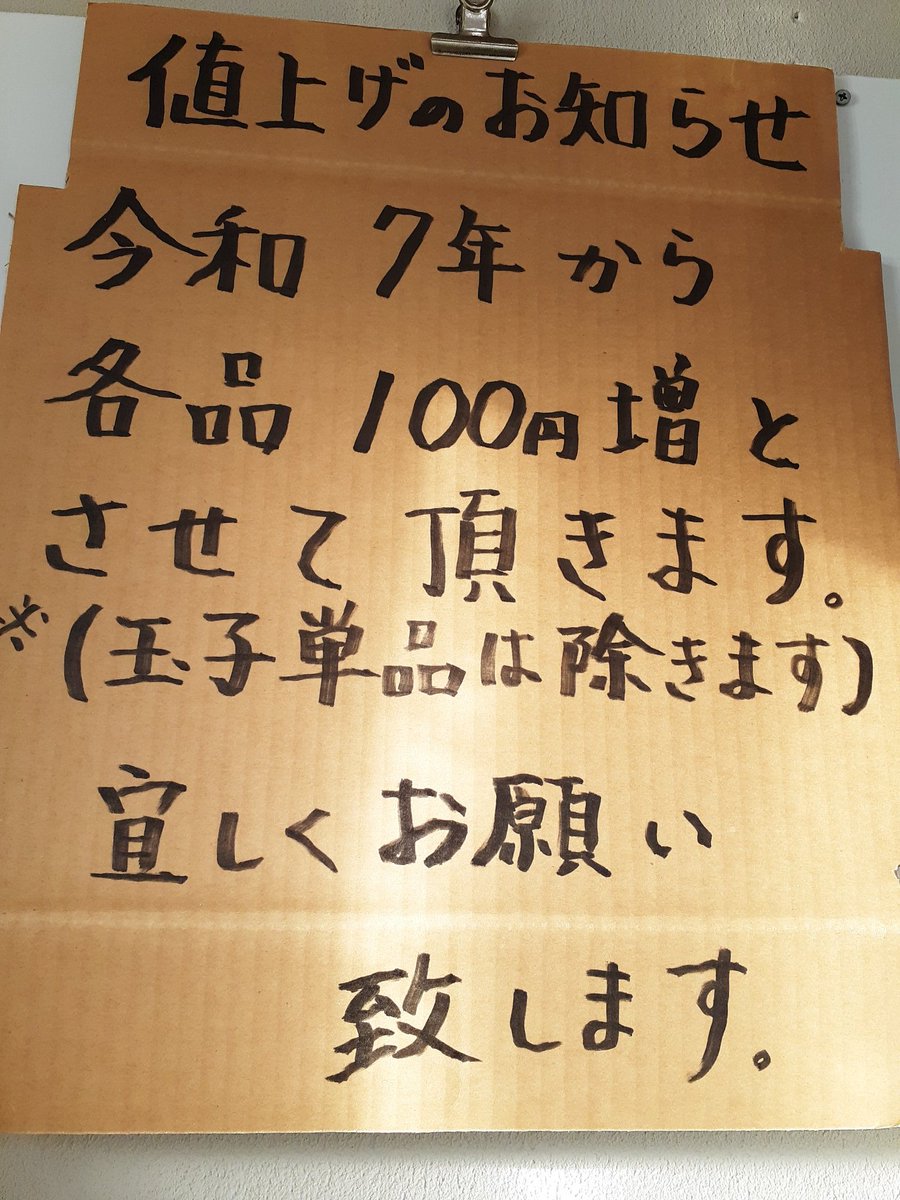 値上げのお知らせ
令和7年から
各品100円増と
させて頂きます。
※(玉子単品は除きます)
宜しくお願い
致します。